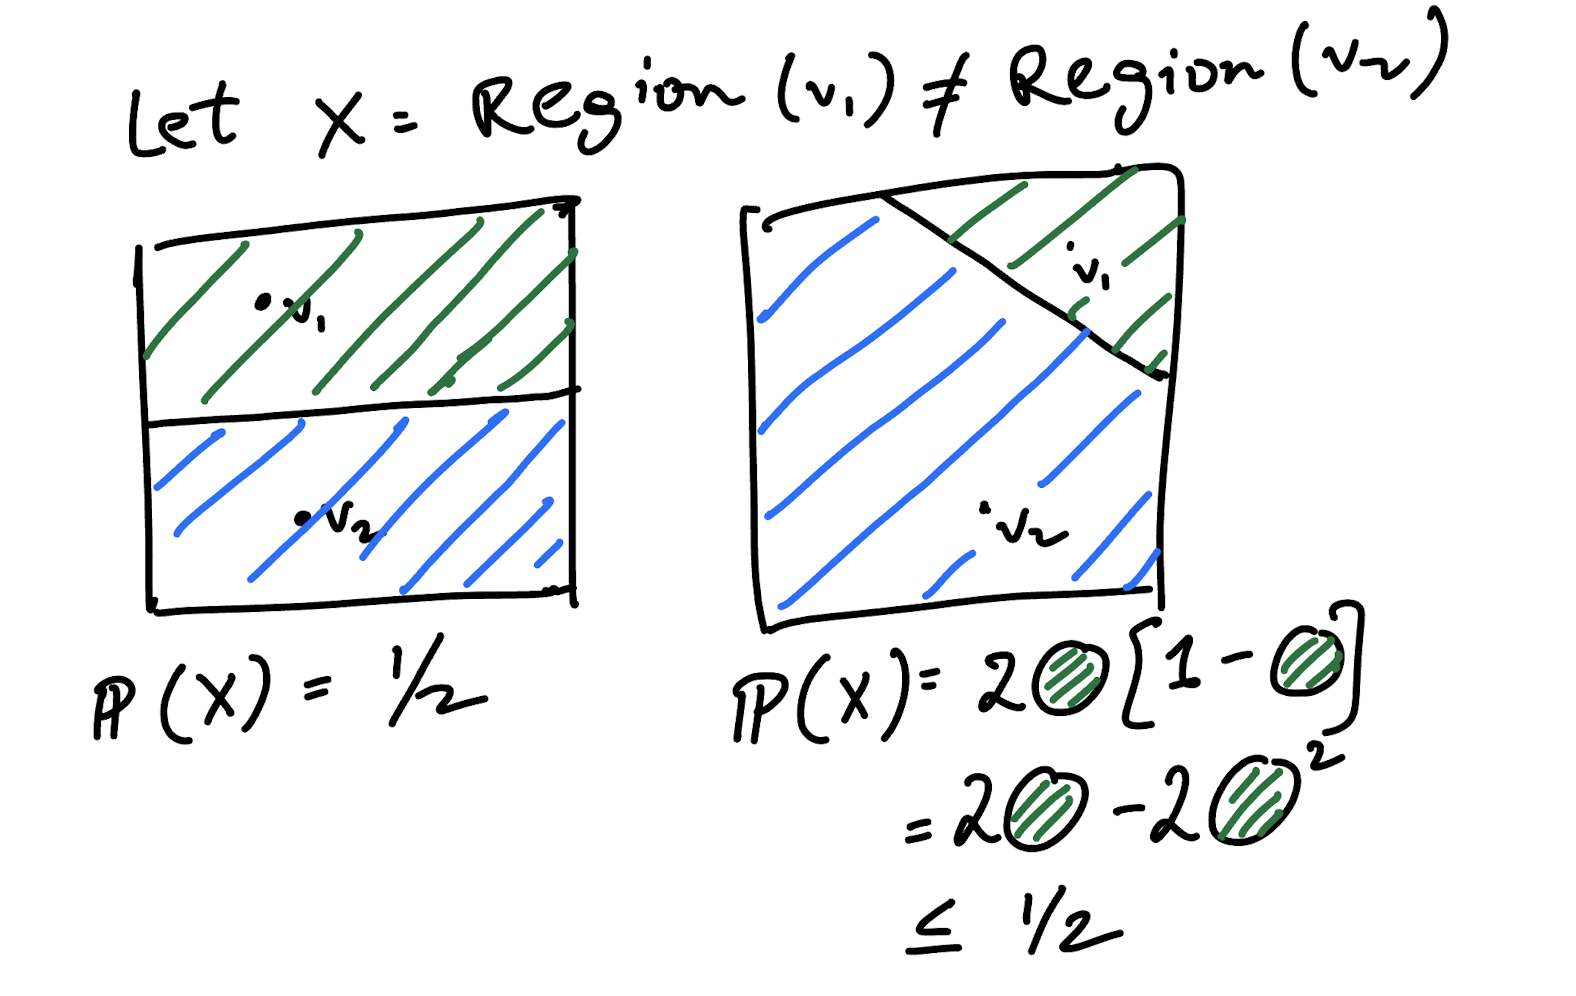 Let X = Region (v₁) ≠ Region (v₂)
v₁
v₂
v₁
v₂
ℙ(X) = 1/2
ℙ(X) = 2 [1 - ]
= 2 - 2 ²
≤ 1/2